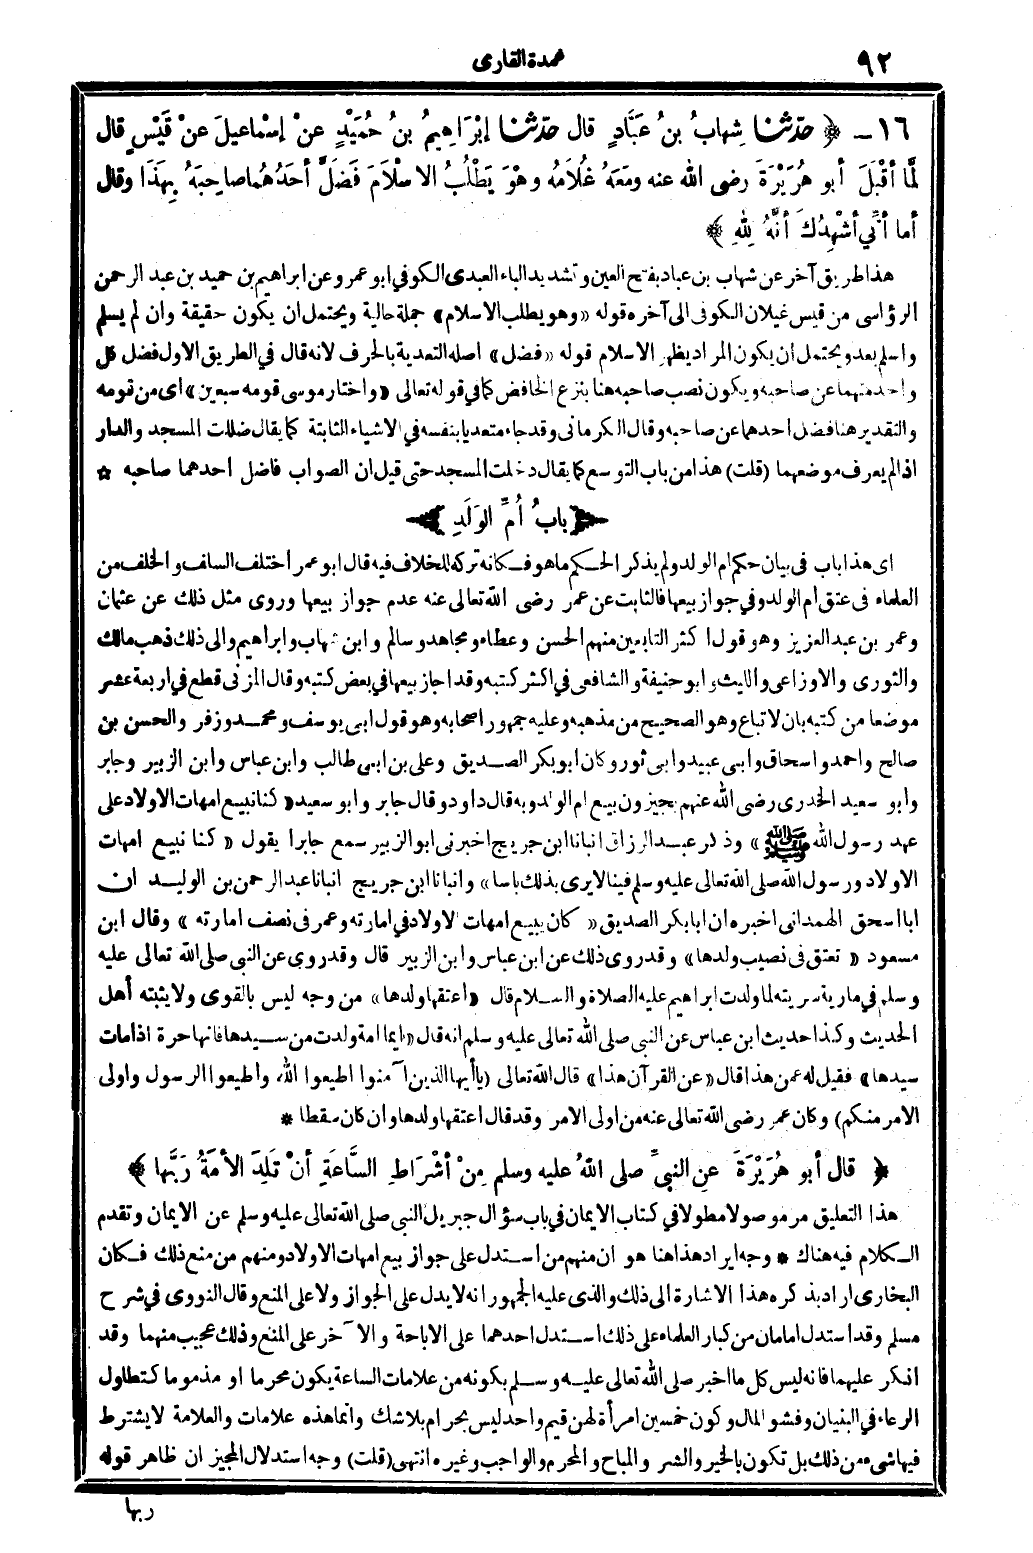 ٩٢
عمدة القارى
١٦ - ﴿ حدّثنا شِهابُ بنُ عَبَّادٍ قال حدّثنا إبْرَاهِيمُ بنُ حُمَيْدٍ عنْ إسْماعيلَ عنْ قَيْسٍ قال
لمَّا أقْبَلَ أبو هُرَيْرَةَ رضى الله عنه ومَعَهُ غُلاَمُه وهْوَ يَطْلُبُ الاسْلاَمَ فَضَلَّ أحَدُهُما صاحِبَهُ بِهَذَا وقال
أما أنِّي أُشْهِدُكَ أنَّهُ لِلهِ ﴾
هذا طريق آخر عن شهاب بن عباد بفتح العين وتشديد الباء العبدى الكوفي ابو عمرو عن ابراهيم بن حميد بن عبد الرحمن
الرؤاسى من قيس غيلان الكوفى الى آخره قوله «وهو يطلب الاسلام» جملة حالية ويحتمل ان يكون حقيقة وان لم يسلم
واسلم بعد ويحتمل ان يكون المراد يظهر الاسلام قوله «فضل» اصله التعدية بالحرف لانه قال في الطريق الاول فضل كل
واحد منهما عن صاحبه ويكون نصب صاحبه هنا بنزع الخافض كما في قوله تعالى «واختار موسى قومه سبعين» اى من قومه
والتقدير هنا فضل احدهما عن صاحبه وقال الكرمانى وقد جاء متعديا بنفسه في الاشياء الثابتة كما يقال ضللت المسجد والدار
اذا لم يعرف موضعهما (قلت) هذا من باب التوسع كما يقال دخلت المسجد حتى قيل ان الصواب فاضل احدهما صاحبه ☆
بابُ أُمِّ الوَلَدِ
اى هذا باب فى بيان حكم ام الولد ولم يذكر الحكم ما هو فكانه تركه للخلاف فيه قال ابو عمر اختلف السلف والخلف من
العلماء فى عتق ام الولد وفي جواز بيعها فالثابت عن عمر رضى الله تعالى عنه عدم جواز بيعها وروى مثل ذلك عن عثمان
وعمر بن عبد العزيز وهو قول اكثر التابعين منهم الحسن وعطاء ومجاهد وسالم وابن شهاب وابراهيم والى ذلك ذهب مالك
والثورى والاوزاعى والليث وابو حنيفة والشافعى في اكثر كتبه وقد اجاز بيعها في بعض كتبه وقال المزنى قطع في اربعة عشر
موضعا من كتبه بان لا تباع وهو الصحيح من مذهبه وعليه جمهور اصحابه وهو قول ابى يوسف ومحمد وزفر والحسن بن
صالح واحمد واسحاق وابى عبيد وابى ثور وكان ابو بكر الصديق وعلى بن ابى طالب وابن عباس وابن الزبير وجابر
وابو سعيد الخدرى رضى الله عنهم يجيزون بيع ام الولد وبه قال داود وقال جابر وابو سعيد «كنا نبيع امهات الاولاد على
عهد رسول الله ﷺ» وذكر عبد الرزاق انبانا ابن جريج اخبرنى ابو الزبير سمع جابرا يقول «كنا نبيع امهات
الاولاد ورسول الله صلى الله تعالى عليه وسلم فينا لا يرى بذلك باسا» وانبانا ابن جريج انبانا عبد الرحمن بن الوليد ان
ابا اسحق الهمدانى اخبره ان ابا بكر الصديق «كان يبيع امهات الاولاد في امارته وعمر فى نصف امارته» وقال ابن
مسعود «تعتق فى نصيب ولدها» وقد روى ذلك عن ابن عباس وابن الزبير قال وقد روى عن النبى صلى الله تعالى عليه
وسلم في مارية سريته لما ولدت ابراهيم عليه الصلاة والسلام قال «اعتقها ولدها» من وجه ليس بالقوى ولا يثبته أهل
الحديث وكذا حديث ابن عباس عن النبى صلى الله تعالى عليه وسلم انه قال «ايما امة ولدت من سيدها فانها حرة اذا مات
سيدها» فقيل له عمن هذا قال «عن القرآن هذا» قال الله تعالى (يا أيها الذين آمنوا اطيعوا الله واطيعوا الرسول واولى
الامر منكم) وكان عمر رضى الله تعالى عنه من اولى الامر وقد قال اعتقها ولدها وان كان سقطا *
﴿ قال أبو هُرَيْرَةَ عنِ النبيِّ صلى اللهُ عليه وسلم مِنْ أشْرَاطِ السَّاعَةِ أنْ تَلِدَ الأمَةُ رَبَّها ﴾
هذا التعليق مر موصولا مطولا في كتاب الايمان في باب سؤال جبريل النبى صلى الله تعالى عليه وسلم عن الايمان وتقدم
الكلام فيه هناك * وجه ايراد هذا هنا هو ان منهم من استدل على جواز بيع امهات الاولاد ومنهم من منع ذلك فكان
البخارى اراد بذكره هذا الاشارة الى ذلك والذى عليه الجمهور انه لا يدل على الجواز ولا على المنع وقال النووى في شرح
مسلم وقد استدل امامان من كبار العلماء على ذلك استدل احدهما على الاباحة والآخر على المنع وذلك عجيب منهما وقد
انكر عليهما فانه ليس كل ما اخبر صلى الله تعالى عليه وسلم بكونه من علامات الساعة يكون محرما او مذموما كتطاول
الرعاء في البنيان وفشو المال وكون خمسين امرأة لهن قيم واحد ليس بحرام بلا شك وانما هذه علامات والعلامة لا يشترط
فيها شىء من ذلك بل تكون بالخير والشر والمباح والمحرم والواجب وغيره انتهى (قلت) وجه استدلال المجيز ان ظاهر قوله
ربها